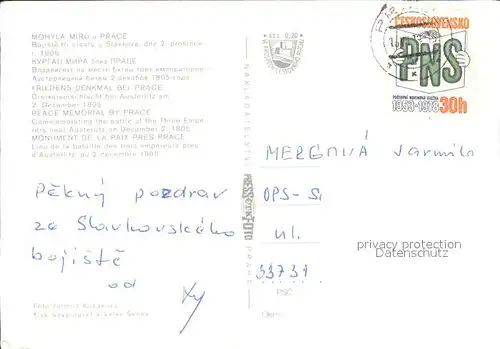 MOHYLA MÍRU u PRACE
Bojiště tří císařů u Slavkova, dne 2. prosince
r. 1805
КУРГАН МИРА близ ПРАЦЕ
Воздвигнут на месте битвы трех императоров
Аустерлицкая битва 2 декабря 1805 года
FRIEDENS-DENKMAL BEI PRACE
Dreikaiserschlacht bei Austerlitz am
2. Dezember 1805
PEACE MEMORIAL BY PRACE
Commemorating the battle of the Three Empe-
rors near Austerlitz on December 2, 1805
MONUMENT DE LA PAIX PRÈS PRACE
Lieu de la bataille des trois empereurs près
d'Austerlitz au 2 décembre 1805
Pěkný pozdrav
ze Slavkovského
bojiště
od
Foto
NAKLADATELSTVÍ
PRESSFOTO
PRAHA
Kčs 0,70
ČESKOSLOVENSKO
PNS
POŠTOVNÍ NOVINOVÁ SLUŽBA
1953-1978 30h
MERGOVÁ Jarmila
OPS-
ul.
33731
PSČ
privacy protection
watermark for